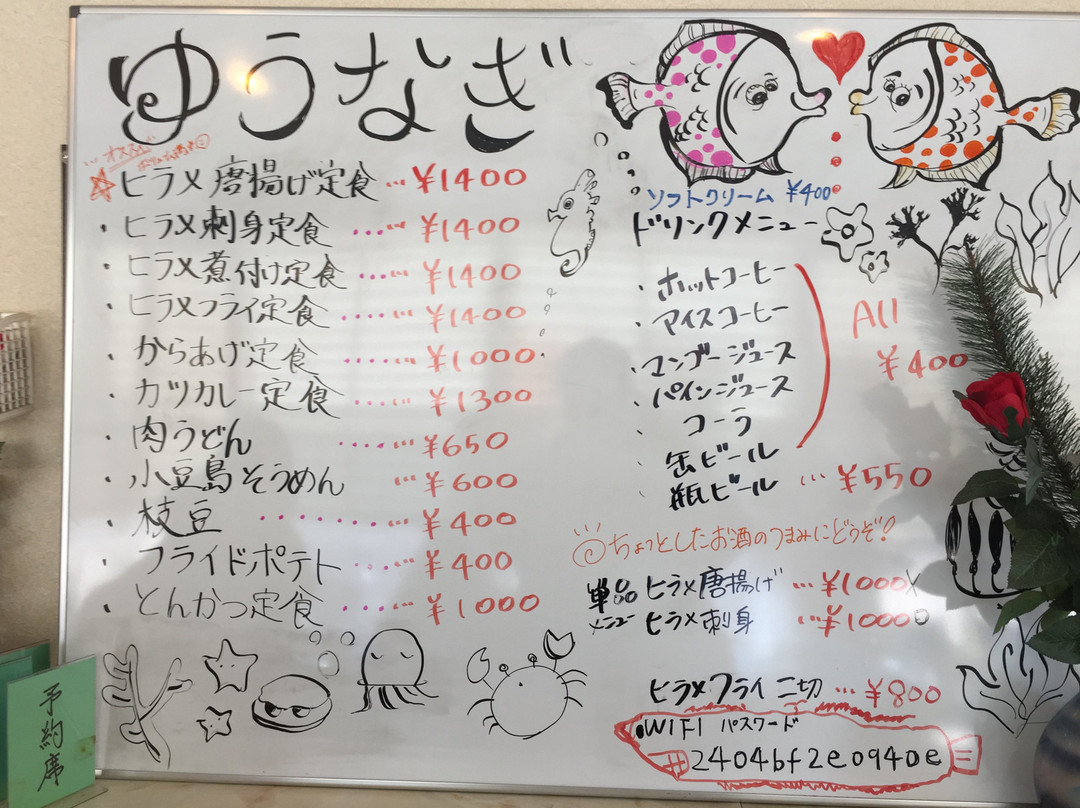 ゆうなぎ
オススメ
ヒラメ唐揚げ定食 … ¥1400
・ヒラメ刺身定食 …… ¥1400
・ヒラメ煮付け定食 …… ¥1400
・ヒラメフライ定食 …… ¥1400
・からあげ定食 …… ¥1000
・カツカレー定食 …… ¥1300
・肉うどん …… ¥650
・小豆島そうめん … ¥600
・枝豆 ……… ¥400
・フライドポテト …… ¥400
・とんかつ定食 …… ¥1000
ソフトクリーム ¥400
ドリンクメニュー
・ホットコーヒー
・アイスコーヒー
・マンゴージュース
・パインジュース
・コーラ
・缶ビール
All
¥400
・瓶ビール … ¥550
ちょっとしたお酒のつまみにどうぞ!
単品
メニュー
ヒラメ唐揚げ … ¥1000
ヒラメ刺身 … ¥1000
ヒラメフライ 二切 … ¥800
•WIFI パスワード
2404bf2e0940e
予約席